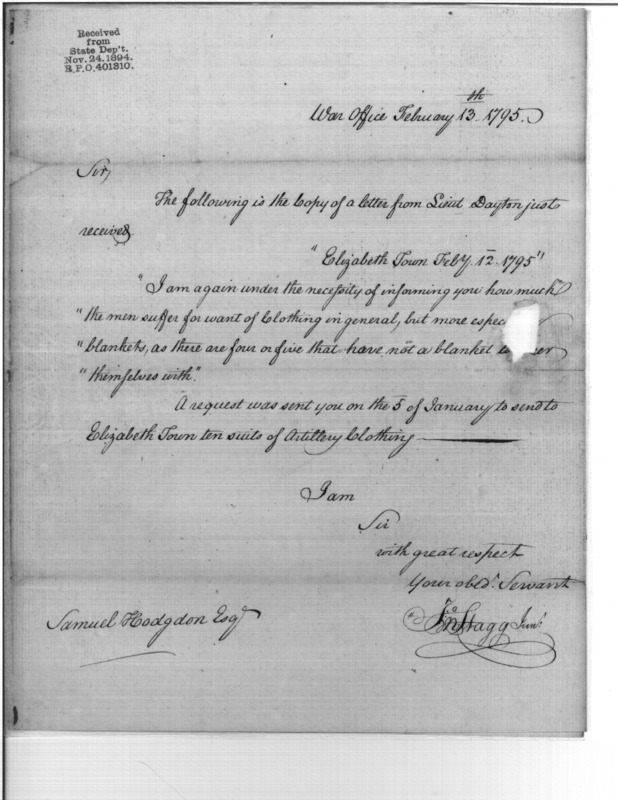 Received
from
State Dep't.
Nov. 24. 1894.
R.P.O. 401310.
War Office February 13th 1795.
Sir,
The following is the Copy of a letter from Lieut Dayton just
received.
"Elizabeth Town Feby. 12 1795"
"I am again under the necessity of informing you how much
"the men suffer for want of Clothing in general, but more espec
"blankets, as there are four or five that have not a blanket
"themselves with".
A request was sent you on the 5 of January to send to
Elizabeth Town ten suits of Artillery Clothing
I am
Sir
with great respect
Your obed. Servant
Jno Stagg Junr
Samuel Hodgdon Esqr